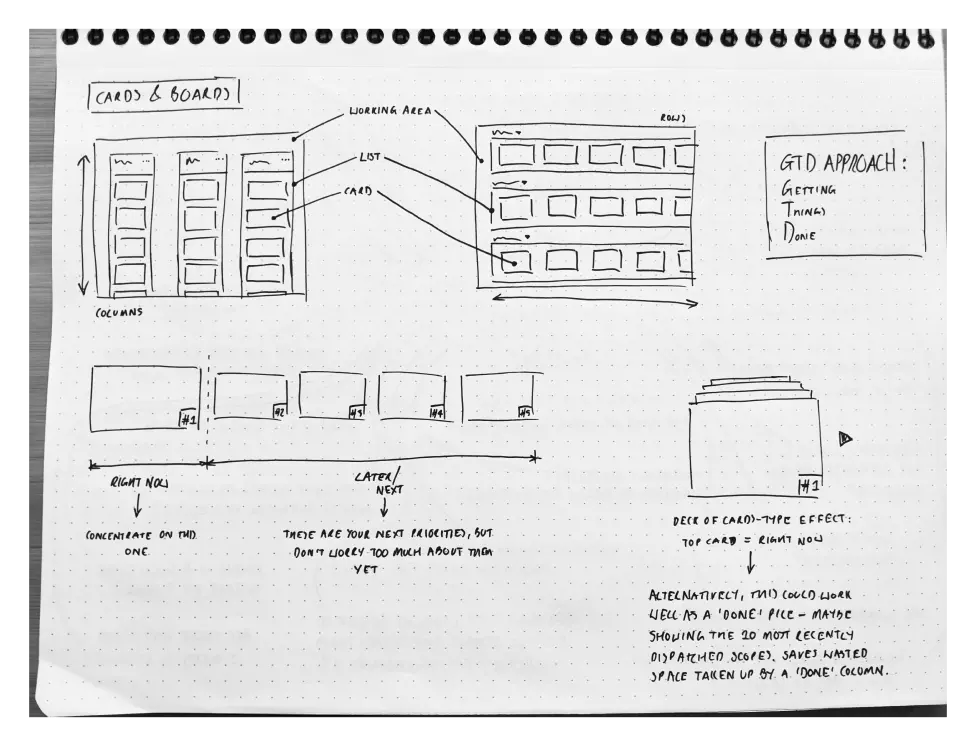 CARDS & BOARDS
WORKING AREA
LIST
CARD
COLUMNS
ROWS
GTD APPROACH:
GETTING
THINGS
DONE
#1
#2
#3
#4
#5
RIGHT NOW
CONCENTRATE ON THIS
ONE.
LATER/
NEXT
THESE ARE YOUR NEXT PRIORITIES, BUT
DON'T WORRY TOO MUCH ABOUT THEM
YET
#1
DECK OF CARDS-TYPE EFFECT:
TOP CARD = RIGHT NOW
ALTERNATIVELY, THIS COULD WORK
WELL AS A 'DONE' PILE - MAYBE
SHOWING THE 20 MOST RECENTLY
DISPATCHED SCOPES. SAVES WASTED
SPACE TAKEN UP BY A 'DONE' COLUMN.